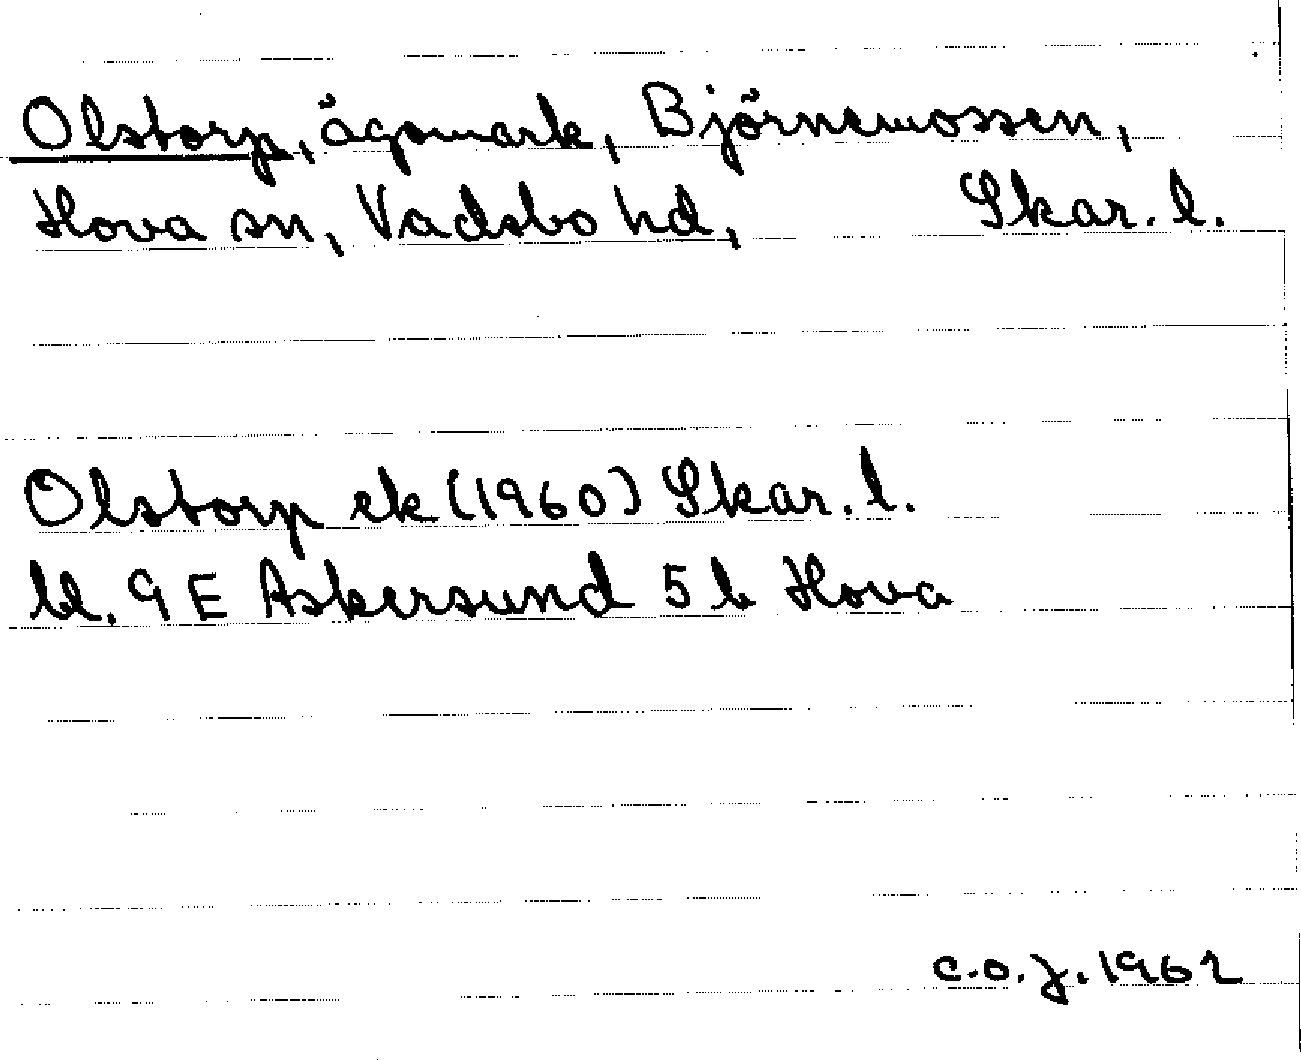 Olstorp, ägomark, Björnemossen,
Hova sn, Vadsbo hd, Skar. l.
Olstorp ek (1960) Skar. l.
bl. 9 E Askersund 5 b Hova
C.O.J. 1962